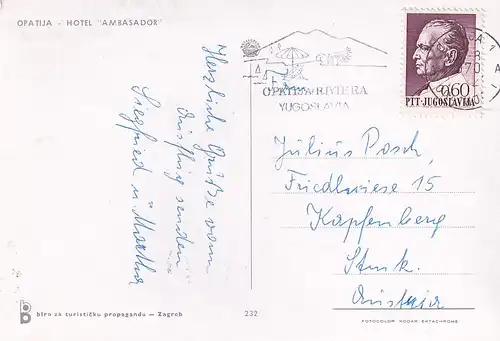 OPATIJA - HOTEL "AMBASADOR"
Herzliche Grüße vom
Ausflug senden
Siegfried u. Martha
OPATIJA-RIVIERA
YUGOSLAVIA
0.60
PTT-JUGOSLAVIJA
Julius Posch,
Friedlwiese 15
Kapfenberg
Stmk.
Austria
biro za turističku propagandu — Zagreb
232
FOTOCOLOR KODAK EKTACHROME